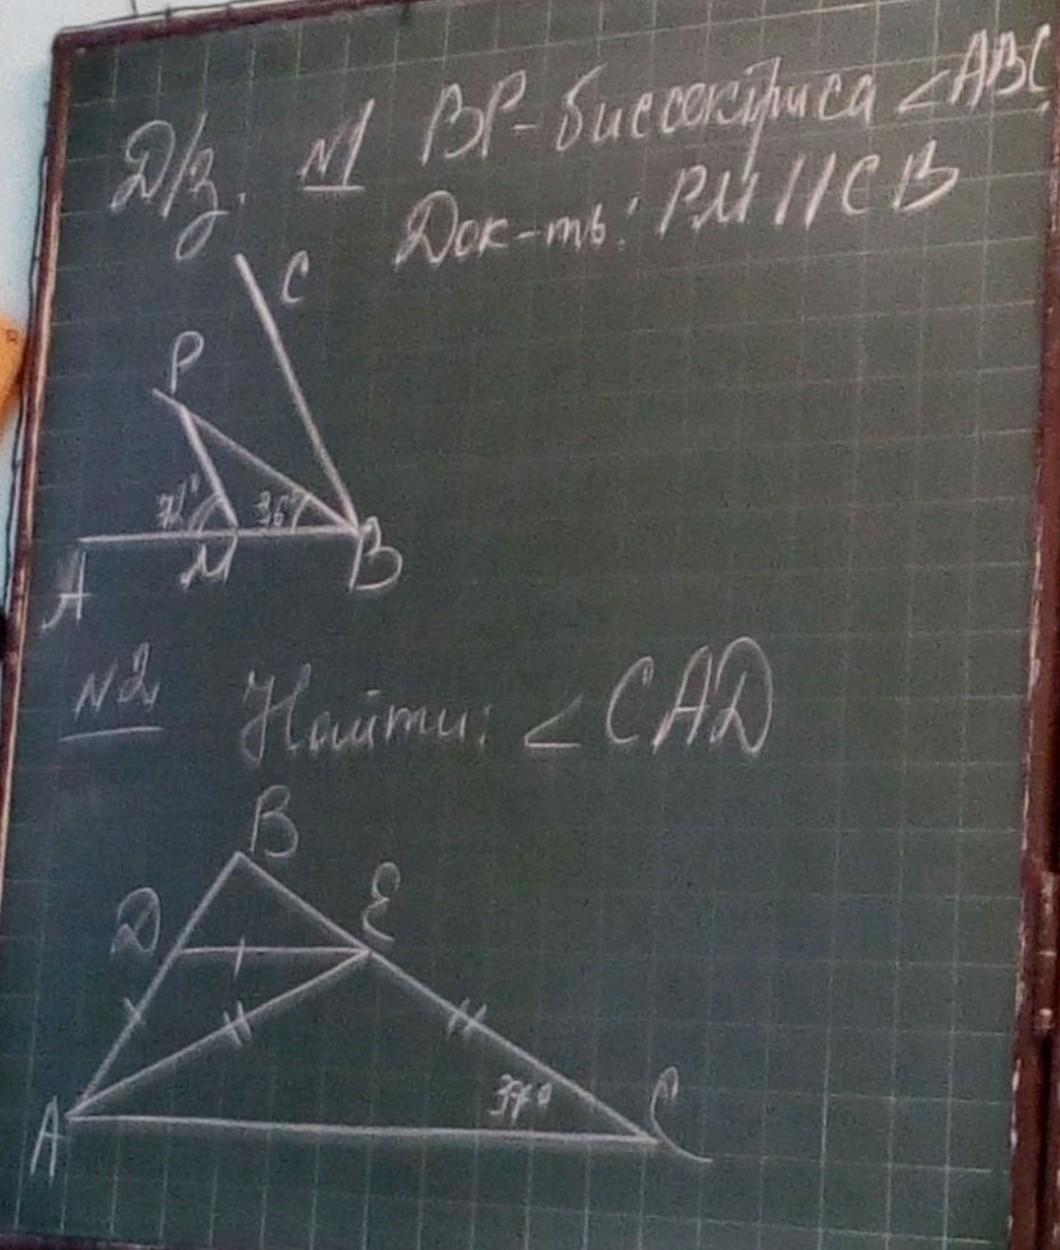 Д/з. №1 BP-биссектриса ∠ABC.
Док-ть: PM//CB
C
P
72° 36°
A M B
№2 Найти: ∠CAD
B
D E
37°
A C